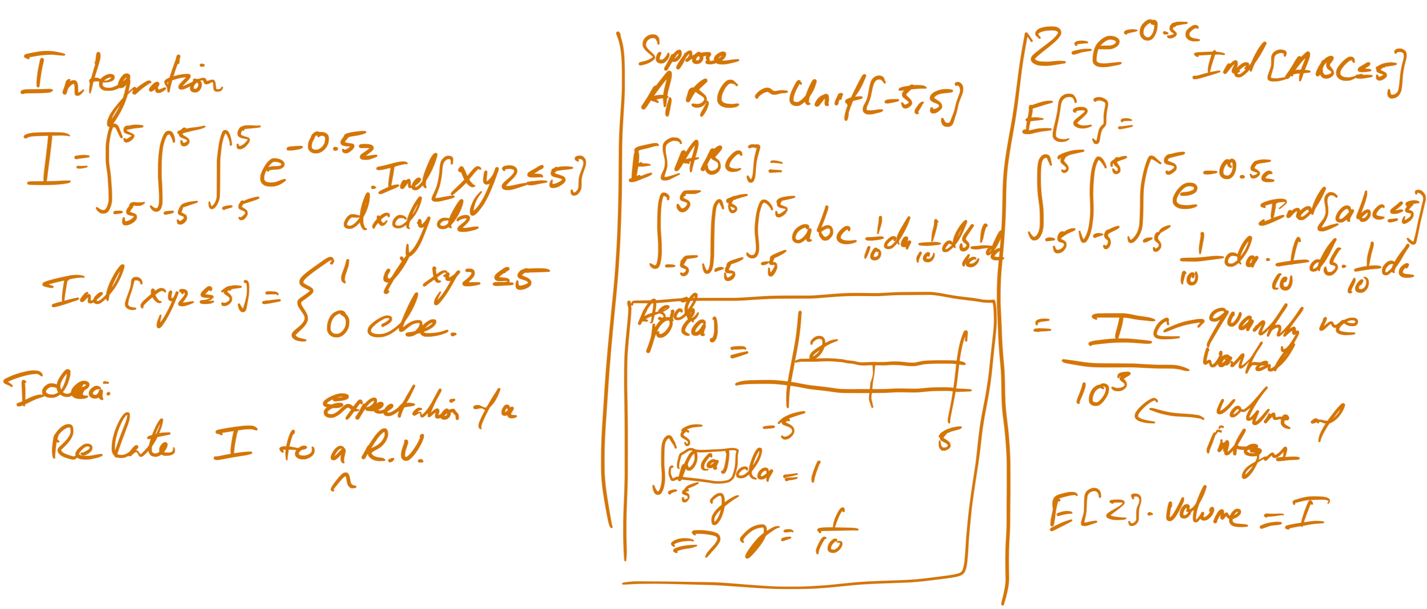 Integration
I = ∫₋₅⁵ ∫₋₅⁵ ∫₋₅⁵ e^{-0.5z} · Ind[xyz≤5]
dxdydz
Ind[xyz≤5] = { 1 if xyz≤5
0 else.
Idea:
Expectation of a
Relate I to a R.V.
^
Suppose
A, B, C ~ Unif[-5,5]
E[ABC] =
∫₋₅⁵ ∫₋₅⁵ ∫₋₅⁵ abc 1/10 da 1/10 db 1/10 dc
Aside
p(a) =
γ
-5 5
∫₋₅⁵ p(a) da = 1
γ
=> γ = 1/10
Z = e^{-0.5c} Ind[ABC≤5]
E[Z] =
∫₋₅⁵ ∫₋₅⁵ ∫₋₅⁵ e^{-0.5c} Ind[abc≤5]
1/10 da · 1/10 db · 1/10 dc
= I / 10³
I ← quantity we
wanted
10³ ← volume of
E[Z] · volume = I